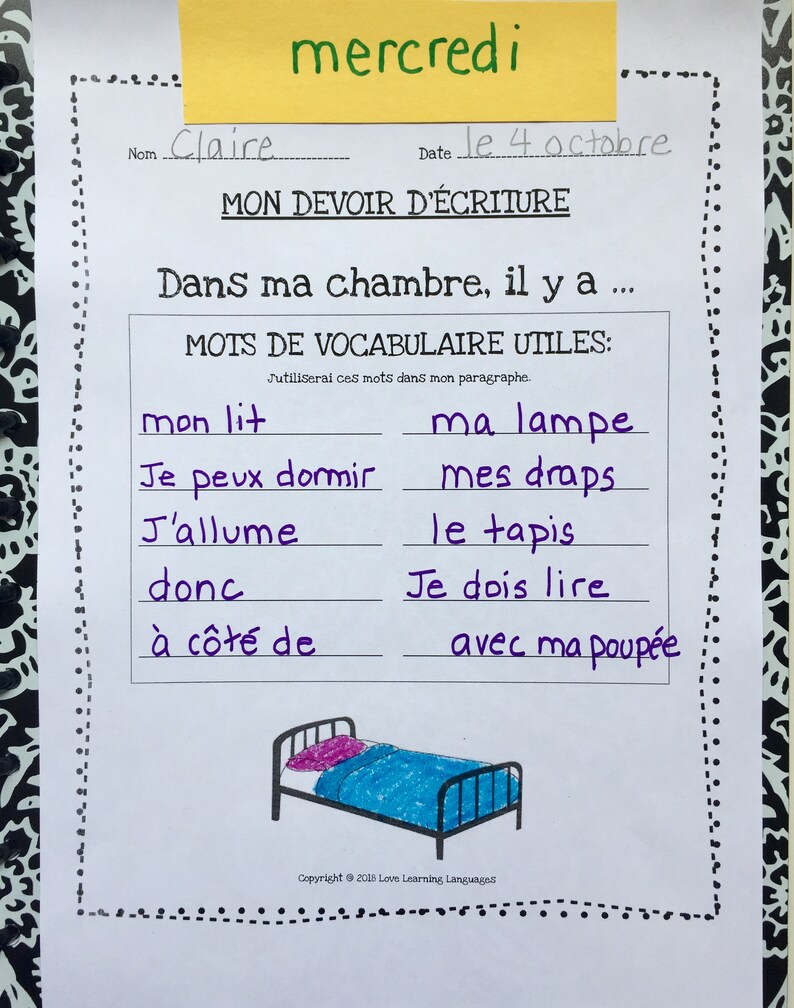 mercredi
Nom Claire Date le 4 octobre
MON DEVOIR D'ÉCRITURE
Dans ma chambre, il y a ...
MOTS DE VOCABULAIRE UTILES:
J'utiliserai ces mots dans mon paragraphe.
mon lit ma lampe
Je peux dormir mes draps
J'allume le tapis
donc Je dois lire
à côté de avec ma poupée
Copyright © 2018 Love Learning Languages